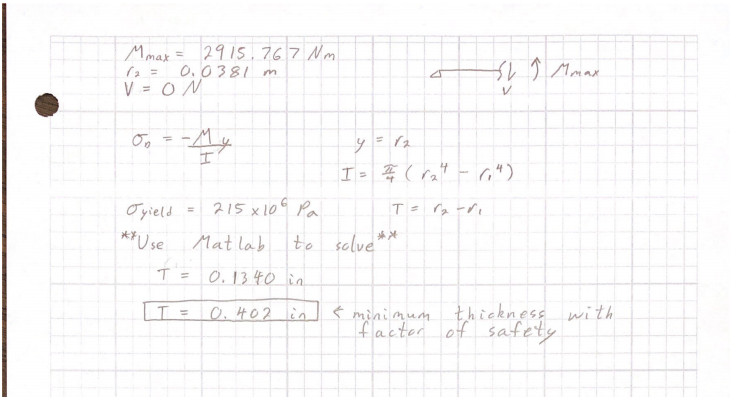 M max = 2915.767 Nm
r₂ = 0.0381 m
V = 0 N
V
M max
σ₀ = -My/I
y = r₂
I = π/4 (r₂⁴ - r₁⁴)
σyield = 215 x10⁶ Pa
T = r₂-r₁
**Use Matlab to solve**
T = 0.1340 in
T = 0.402 in ← minimum thickness with
factor of safety